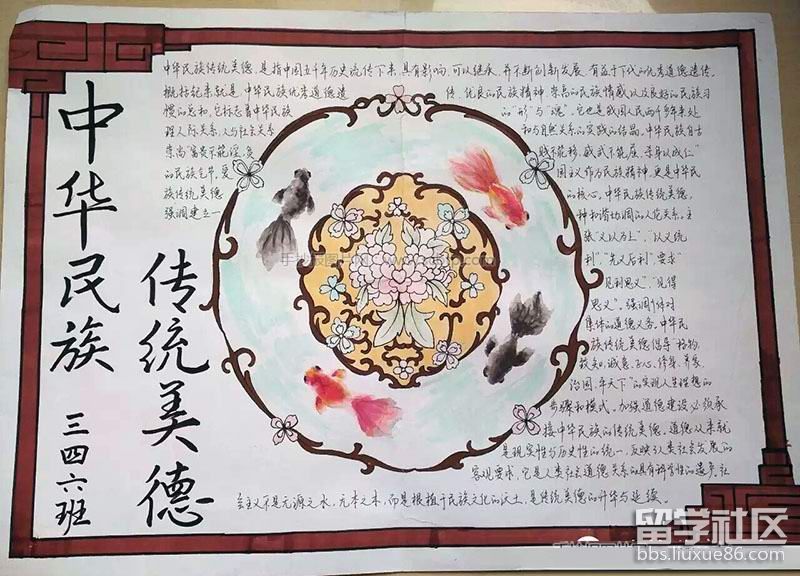 中华民族
传统美德
三四六班
中华民族传统美德,是指中国五千年历史流传下来,具有影响,可以继承,并不断创新发展,有益于下代的优秀道德遗传.
概括起来就是,中华民族优秀道德遗传,优良的民族精神,崇高的民族情感以及良好的民族习
惯的总和,它标志着中华民族的"形"与"魂".它也是我国人民两千多年来处
理人际关系,人与社会关系和与自然关系的实践的结晶.中华民族自古
崇尚"富贵不能淫,贫贱不能移,威武不能屈,杀身以成仁"
的民族气节,爱国主义作为民族精神,更是中华民
族传统美德的核心。中华民族传统美德,
强调建立一种和谐协调的人伦关系,主
张"义以为上","以义统
利","先义后利",要求
"见利思义","见得
思义",强调个体对
集体的道德义务。中华民
族传统美德倡导"格物,
致知,诚意,正心,修身,齐家,
治国,平天下"的实现人生理想的
步骤和模式。加强道德建设必须承
接中华民族的传统美德。道德从来就
是现实性与历史性的统一,反映人类社会发展的
客观要求,它是人类社会道德关系的具有科学性的遗产,社
会主义不是无源之水,无本之木,而是根植于民族文化的沃土,是传统美德的升华与延续。
留学社区
bbs.liuxue86.com